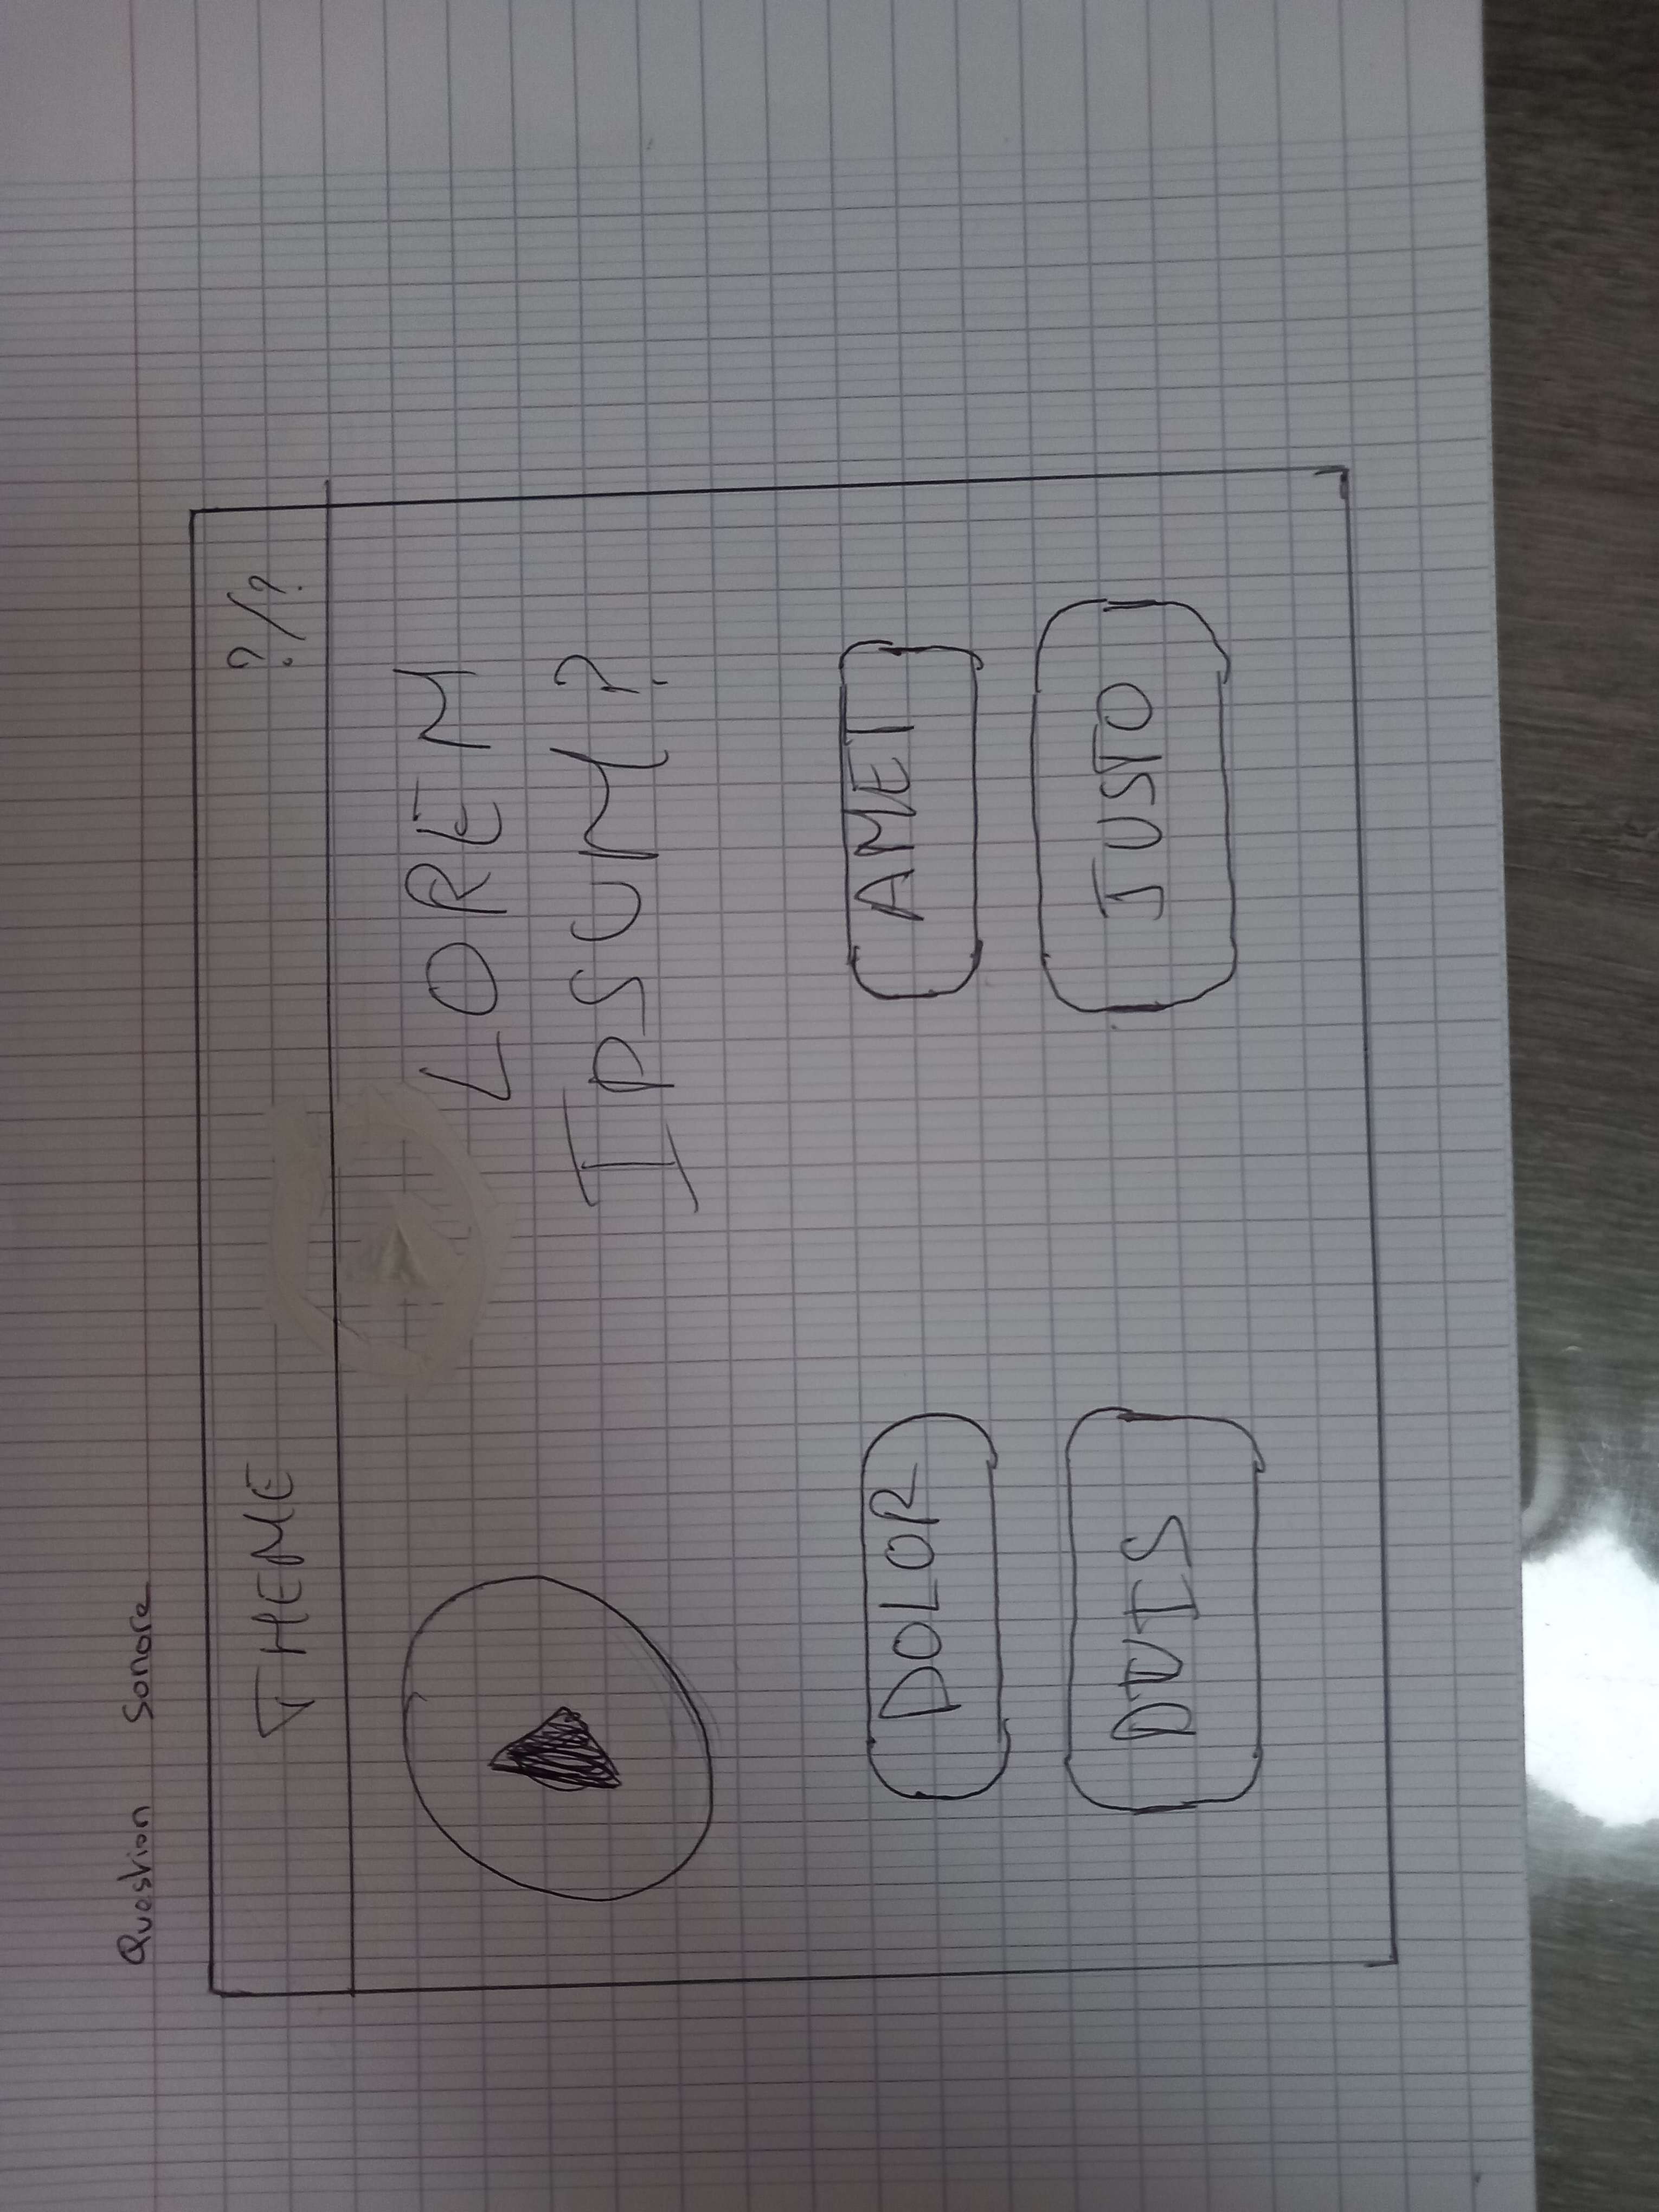 Question Sonore
THEME ?/?
LOREM
IPSUM?
DOLOR AMET
DUIS JUSTO